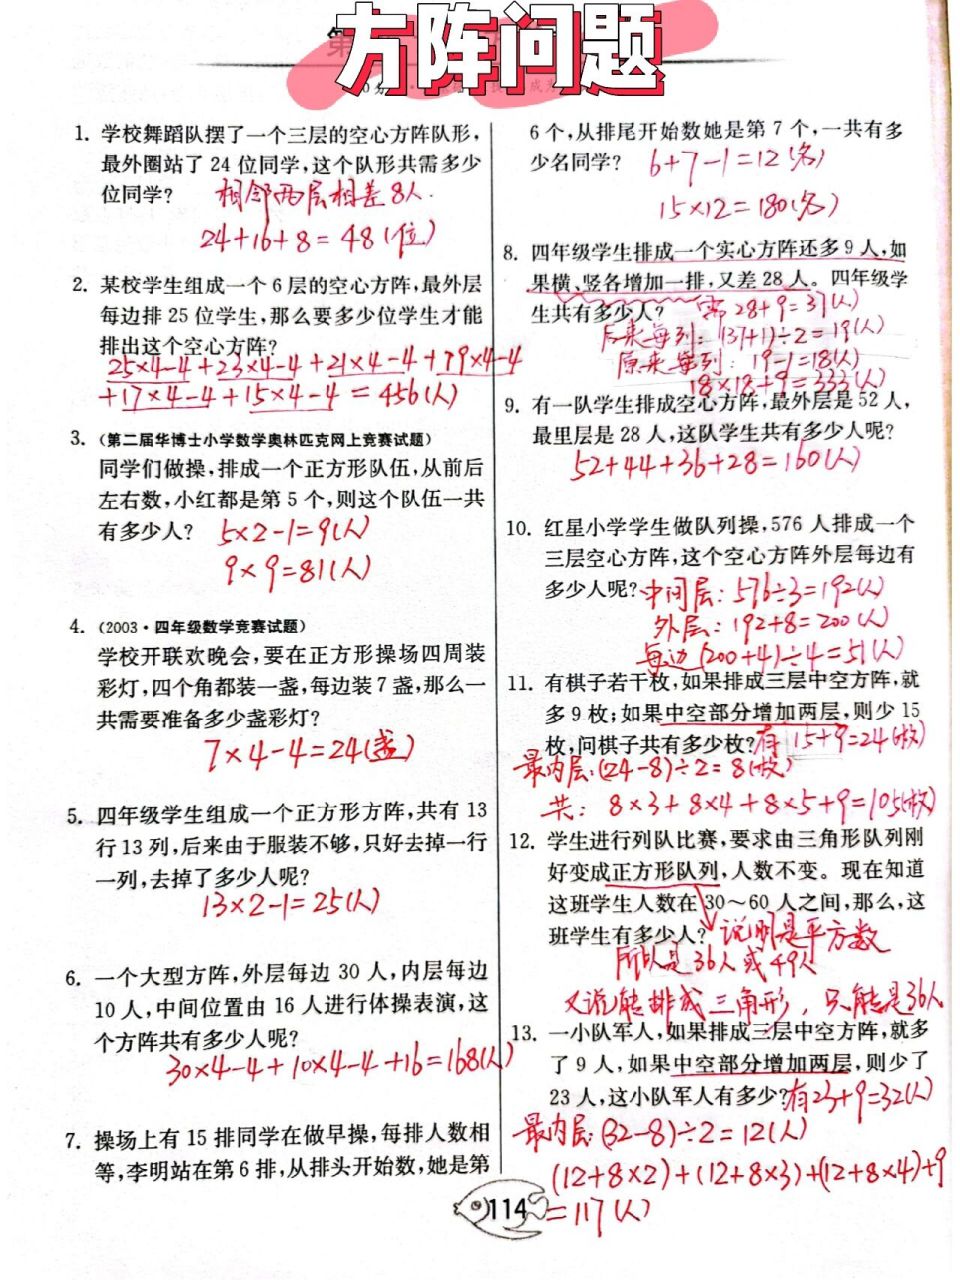 方阵问题
1. 学校舞蹈队摆了一个三层的空心方阵队形,
最外圈站了 24 位同学,这个队形共需多少
位同学?
相邻两层相差8人.
24+16+8=48(位)
2. 某校学生组成一个 6 层的空心方阵,最外层
每边排 25 位学生,那么要多少位学生才能
排出这个空心方阵?
25×4-4+23×4-4+21×4-4+19×4-4
+17×4-4+15×4-4=456(人)
3. (第二届华博士小学数学奥林匹克网上竞赛试题)
同学们做操,排成一个正方形队伍,从前后
左右数,小红都是第 5 个,则这个队伍一共
有多少人?
5×2-1=9(人)
9×9=81(人)
4. (2003·四年级数学竞赛试题)
学校开联欢晚会,要在正方形操场四周装
彩灯,四个角都装一盏,每边装 7 盏,那么一
共需要准备多少盏彩灯?
7×4-4=24(盏)
5. 四年级学生组成一个正方形方阵,共有 13
行 13 列,后来由于服装不够,只好去掉一行
一列,去掉了多少人呢?
13×2-1=25(人)
6. 一个大型方阵,外层每边 30 人,内层每边
10 人,中间位置由 16 人进行体操表演,这
个方阵共有多少人呢?
30×4-4+10×4-4+16=168(人)
7. 操场上有 15 排同学在做早操,每排人数相
等,李明站在第 6 排,从排头开始数,她是第
6 个,从排尾开始数她是第 7 个,一共有多
少名同学?
6+7-1=12(名)
15×12=180(名)
8. 四年级学生排成一个实心方阵还多 9 人,如
果横、竖各增加一排,又差 28 人。四年级学
生共有多少人?
需28+9=37(人)
后来每列:(37+1)÷2=19(人)
原来每列:19-1=18(人)
18×18+9=333(人)
9. 有一队学生排成空心方阵,最外层是 52 人,
最里层是 28 人,这队学生共有多少人呢?
52+44+36+28=160(人)
10. 红星小学学生做队列操,576 人排成一个
三层空心方阵,这个空心方阵外层每边有
多少人呢?
中间层:576÷3=192(人)
外层:192+8=200(人)
每边(200+4)÷4=51(人)
11. 有棋子若干枚,如果排成三层中空方阵,就
多 9 枚;如果中空部分增加两层,则少 15
枚,问棋子共有多少枚?
有15+9=24(枚)
最内层:(24-8)÷2=8(枚)
共:8×3+8×4+8×5+9=105(枚)
12. 学生进行列队比赛,要求由三角形队列刚
好变成正方形队列,人数不变。现在知道
这班学生人数在 30~60 人之间,那么,这
班学生有多少人?
说明是平方数
所以是36人或49人
又说能排成三角形,只能是36人
13. 一小队军人,如果排成三层中空方阵,就多
了 9 人,如果中空部分增加两层,则少了
23 人,这小队军人有多少?
有23+9=32(人)
最内层:(32-8)÷2=12(人)
(12+8×2)+(12+8×3)+(12+8×4)+9
=117(人)
114